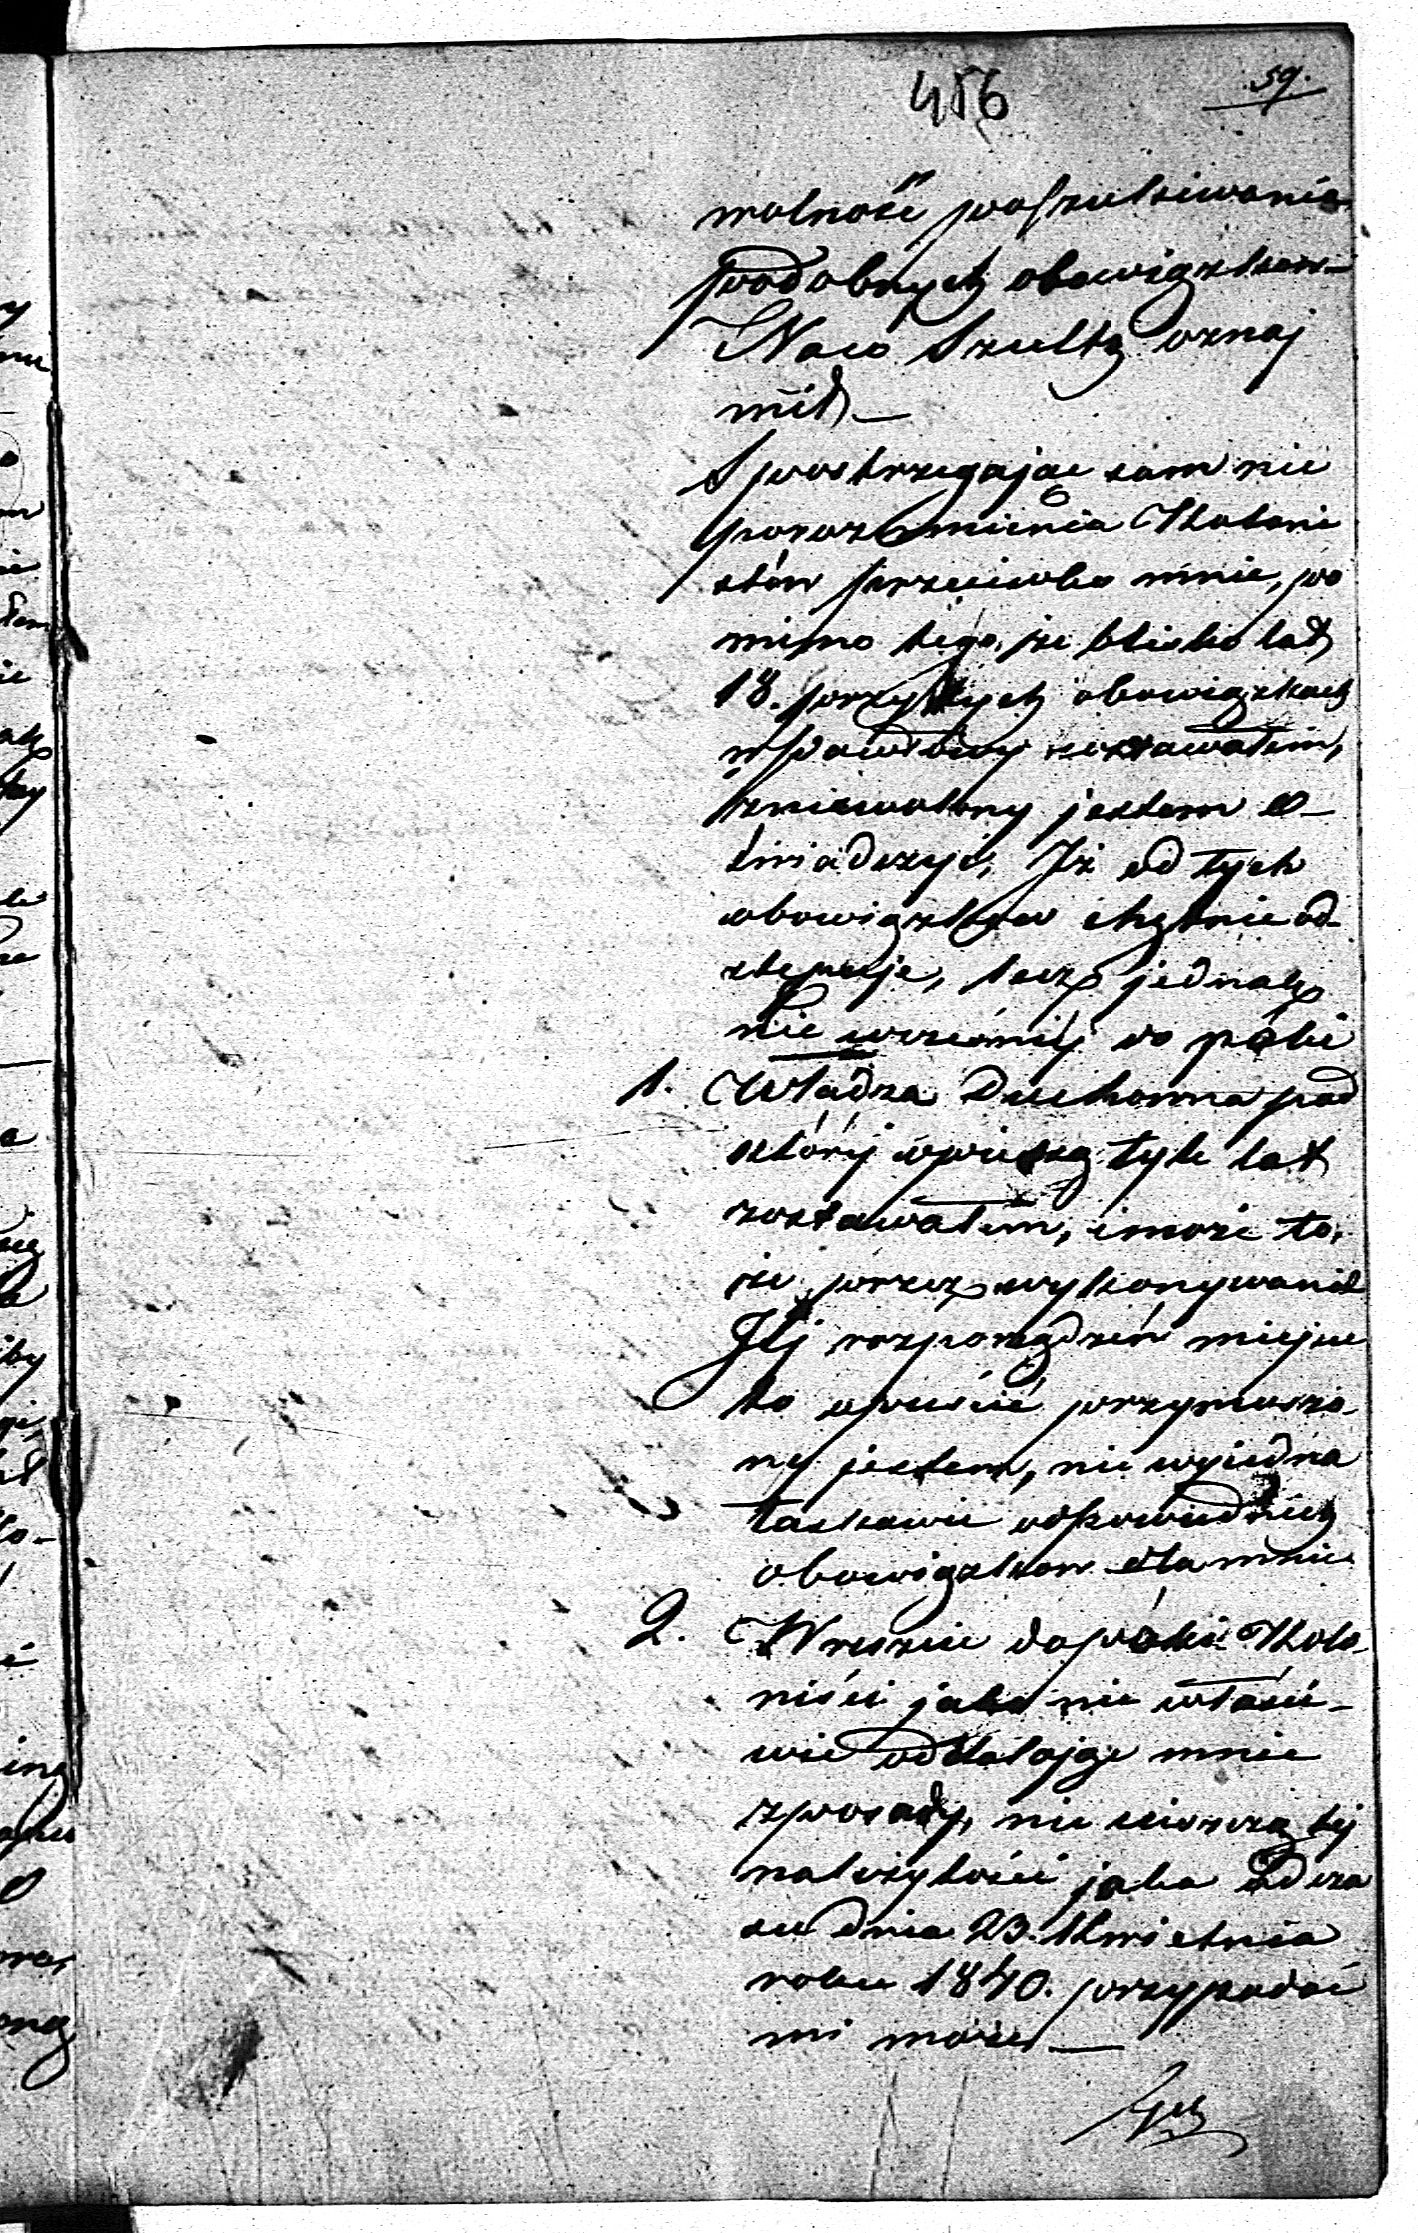 456
59.
wolność poszukiwania
podobnych obowiązkow –
Naco Szultz oznaj
mił –
Spostrzegając sam nie
porozumienia Koloni
stów przeciwko mnie, po
mimo tego że blisko lat
18. przy tych obowiązkach
w Pawłowy zostawałem,
zniewolony jestem o–
świadczyć, Iż od tych
obowiązków chętnie od–
stępuje, lecz jednak
nie wcześniéj do póki
1. Władza Duchowna pod
któréj opieką tyle lat
zostawałem, i może to,
że przez wykonywanie
Jéj rozporządzeń miejsce
to opuścić przymuszo–
ny jestem, nie wyiedna
łaskawie odpowiednich
obowiązkow dla mnie
2. Wreszcie dopóki Kolo–
niści jako nie właści–
wie oddalając mnie
z posady, nie uiszczą téj
należytości jaka od cza
su dnia 23. Kwietnia
roku 1840. przypadać
mi może –